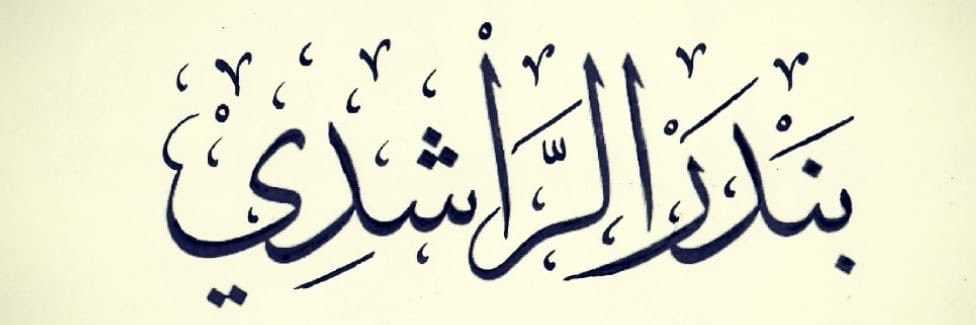 بَنْدَرْ الرَّاشدِيْ